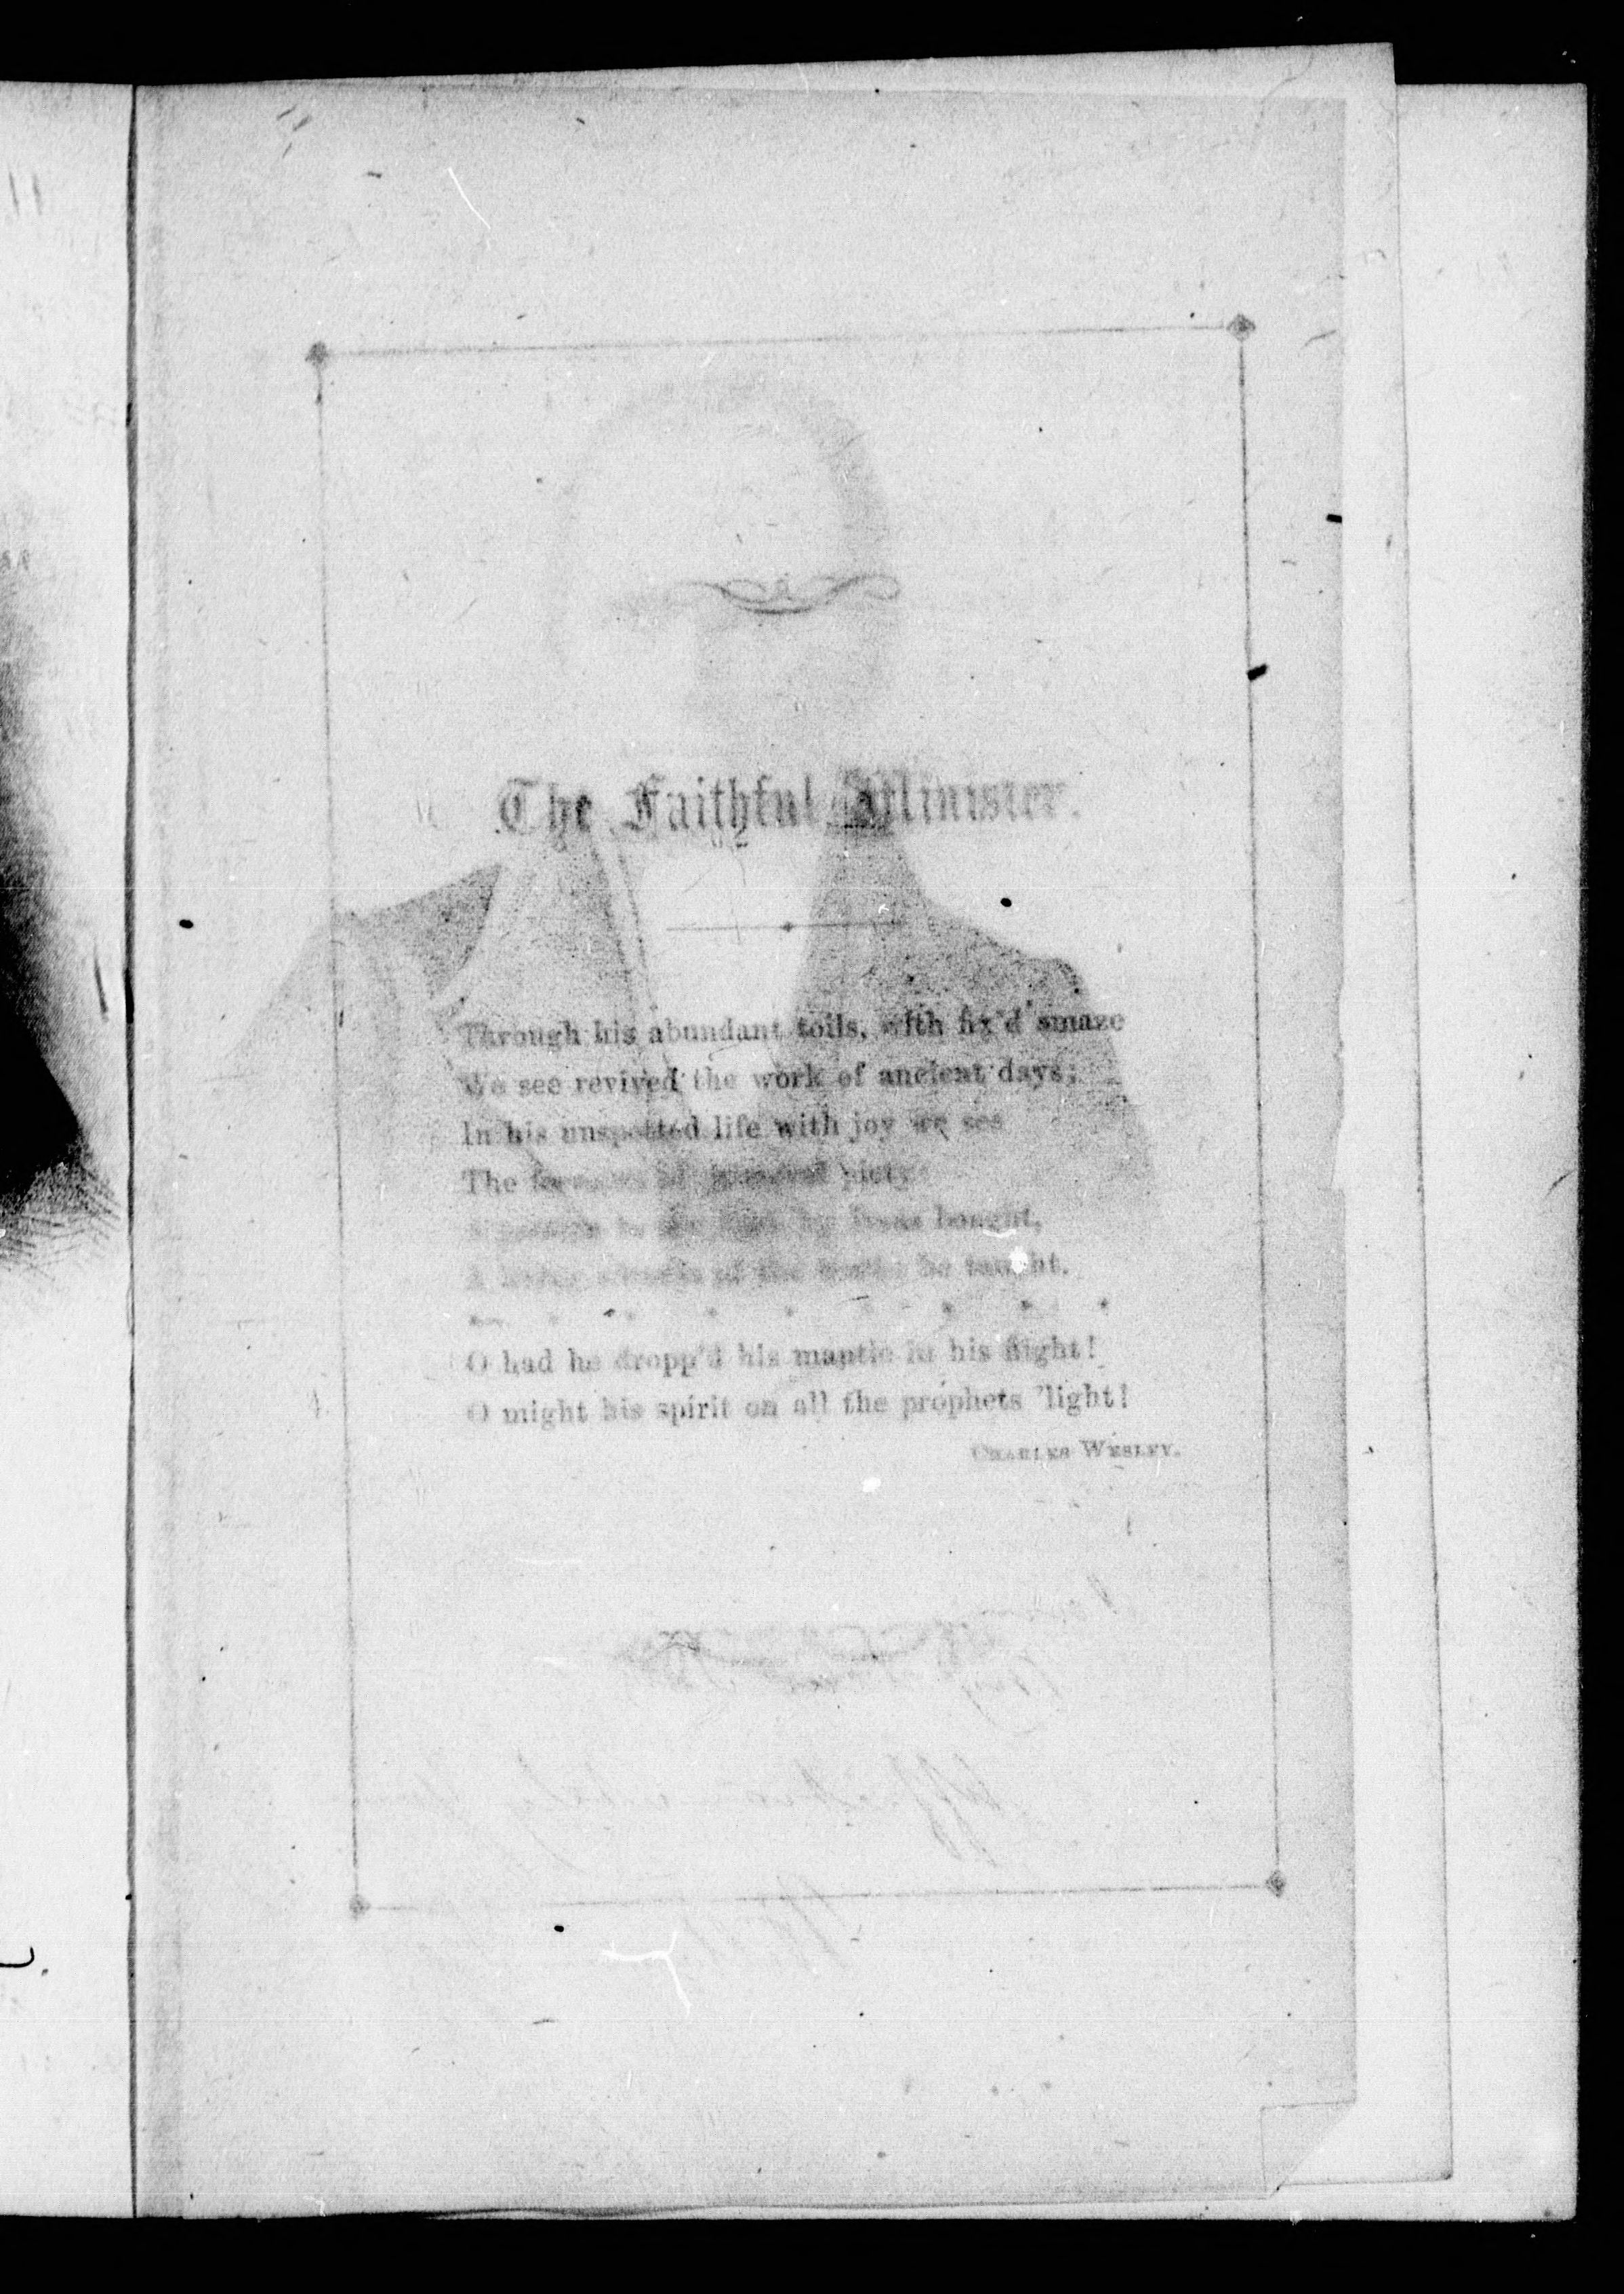 The Faithful Minister.
Through his abundant toils, with fix'd amaze
We see revived the work of ancient days;
In his unspotted life with joy we see
The of primeval piety
to by Jesus bought,
A of the he taught.
O had he dropp'd his mantle in his flight!
O might his spirit on all the prophets 'light!
CHARLES WESLEY.